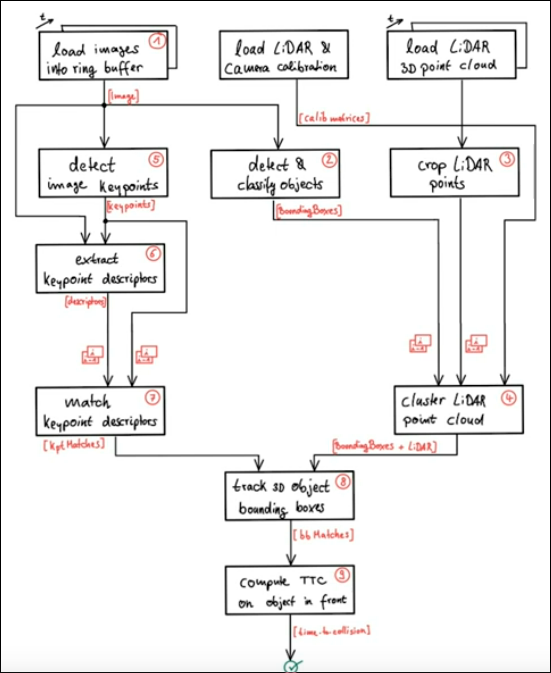 t
t
load images
①
into ring buffer
load LiDAR &
Camera calibration
load LiDAR
3D point cloud
[image]
[calib matrices]
detect
⑤
image keypoints
detect &
②
classify objects
crop LiDAR
③
points
[keypoints]
[BoundingBoxes]
extract
⑥
keypoint descriptors
[descriptors]
match
⑦
keypoint descriptors
cluster LiDAR
④
point cloud
[kptMatches]
[BoundingBoxes + LiDAR]
track 3D object
⑧
bounding boxes
[bbMatches]
compute TTC
⑨
on object in front
[time-to-collision]